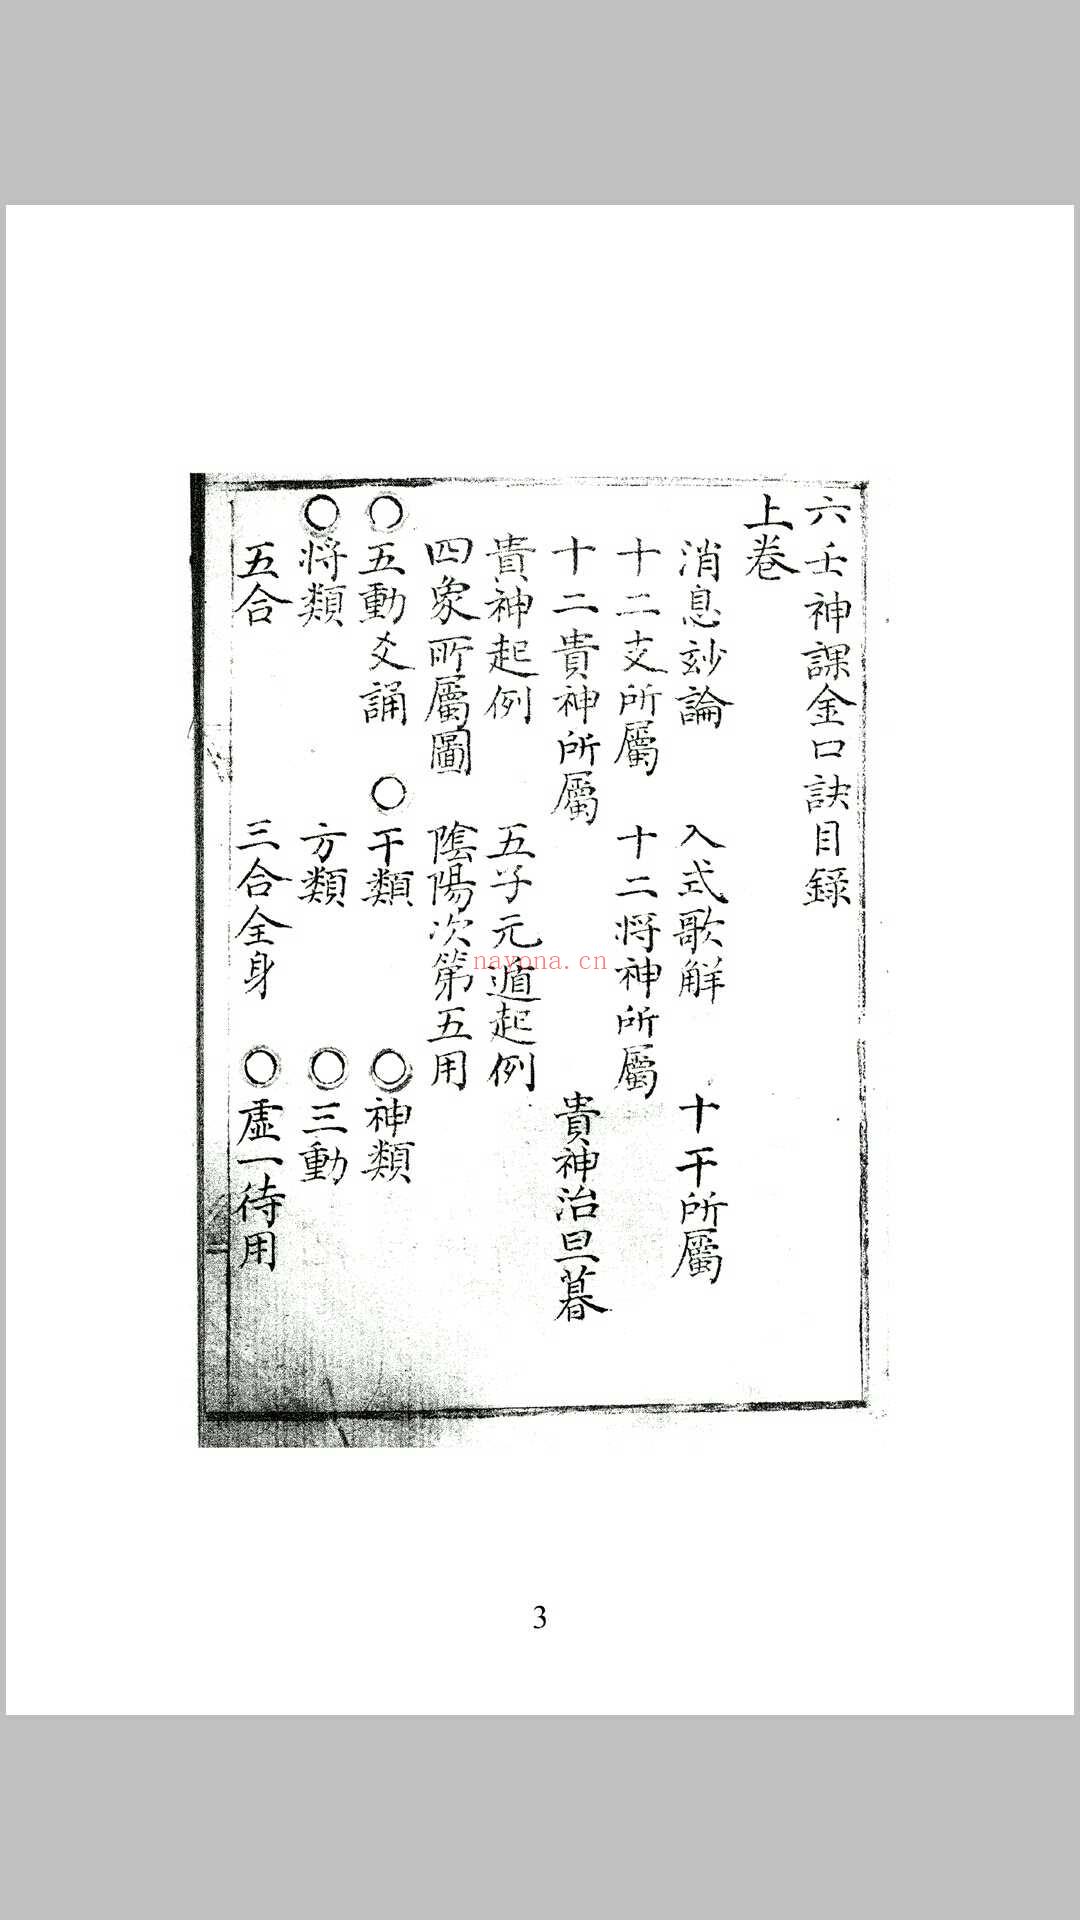 六壬神課金口訣目錄
上卷
消息玅論 入式歌觧 十干所屬
十二支所屬 十二将神所屬
十二貴神所屬 貴神治旦暮
貴神起例 五子元遁起例
四象所屬圖 隂陽次第五用
○五動爻誦 ○干類 ○神類
○将類 方類 ○三動
五合 三合全身 ○虛一待用
nayona.cn
3